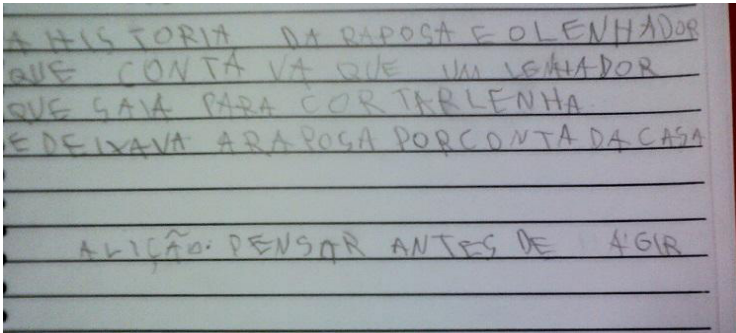 A HISTORIA DA RAPOSA E O LENHADOR
QUE CONTA VA QUE UM LENHADOR
QUE SAIA PARA CORTAR LENHA
E DEIXAVA A RAPOSA POR CONTA DA CASA
A LIÇÃO. PENSAR ANTES DE AGIR